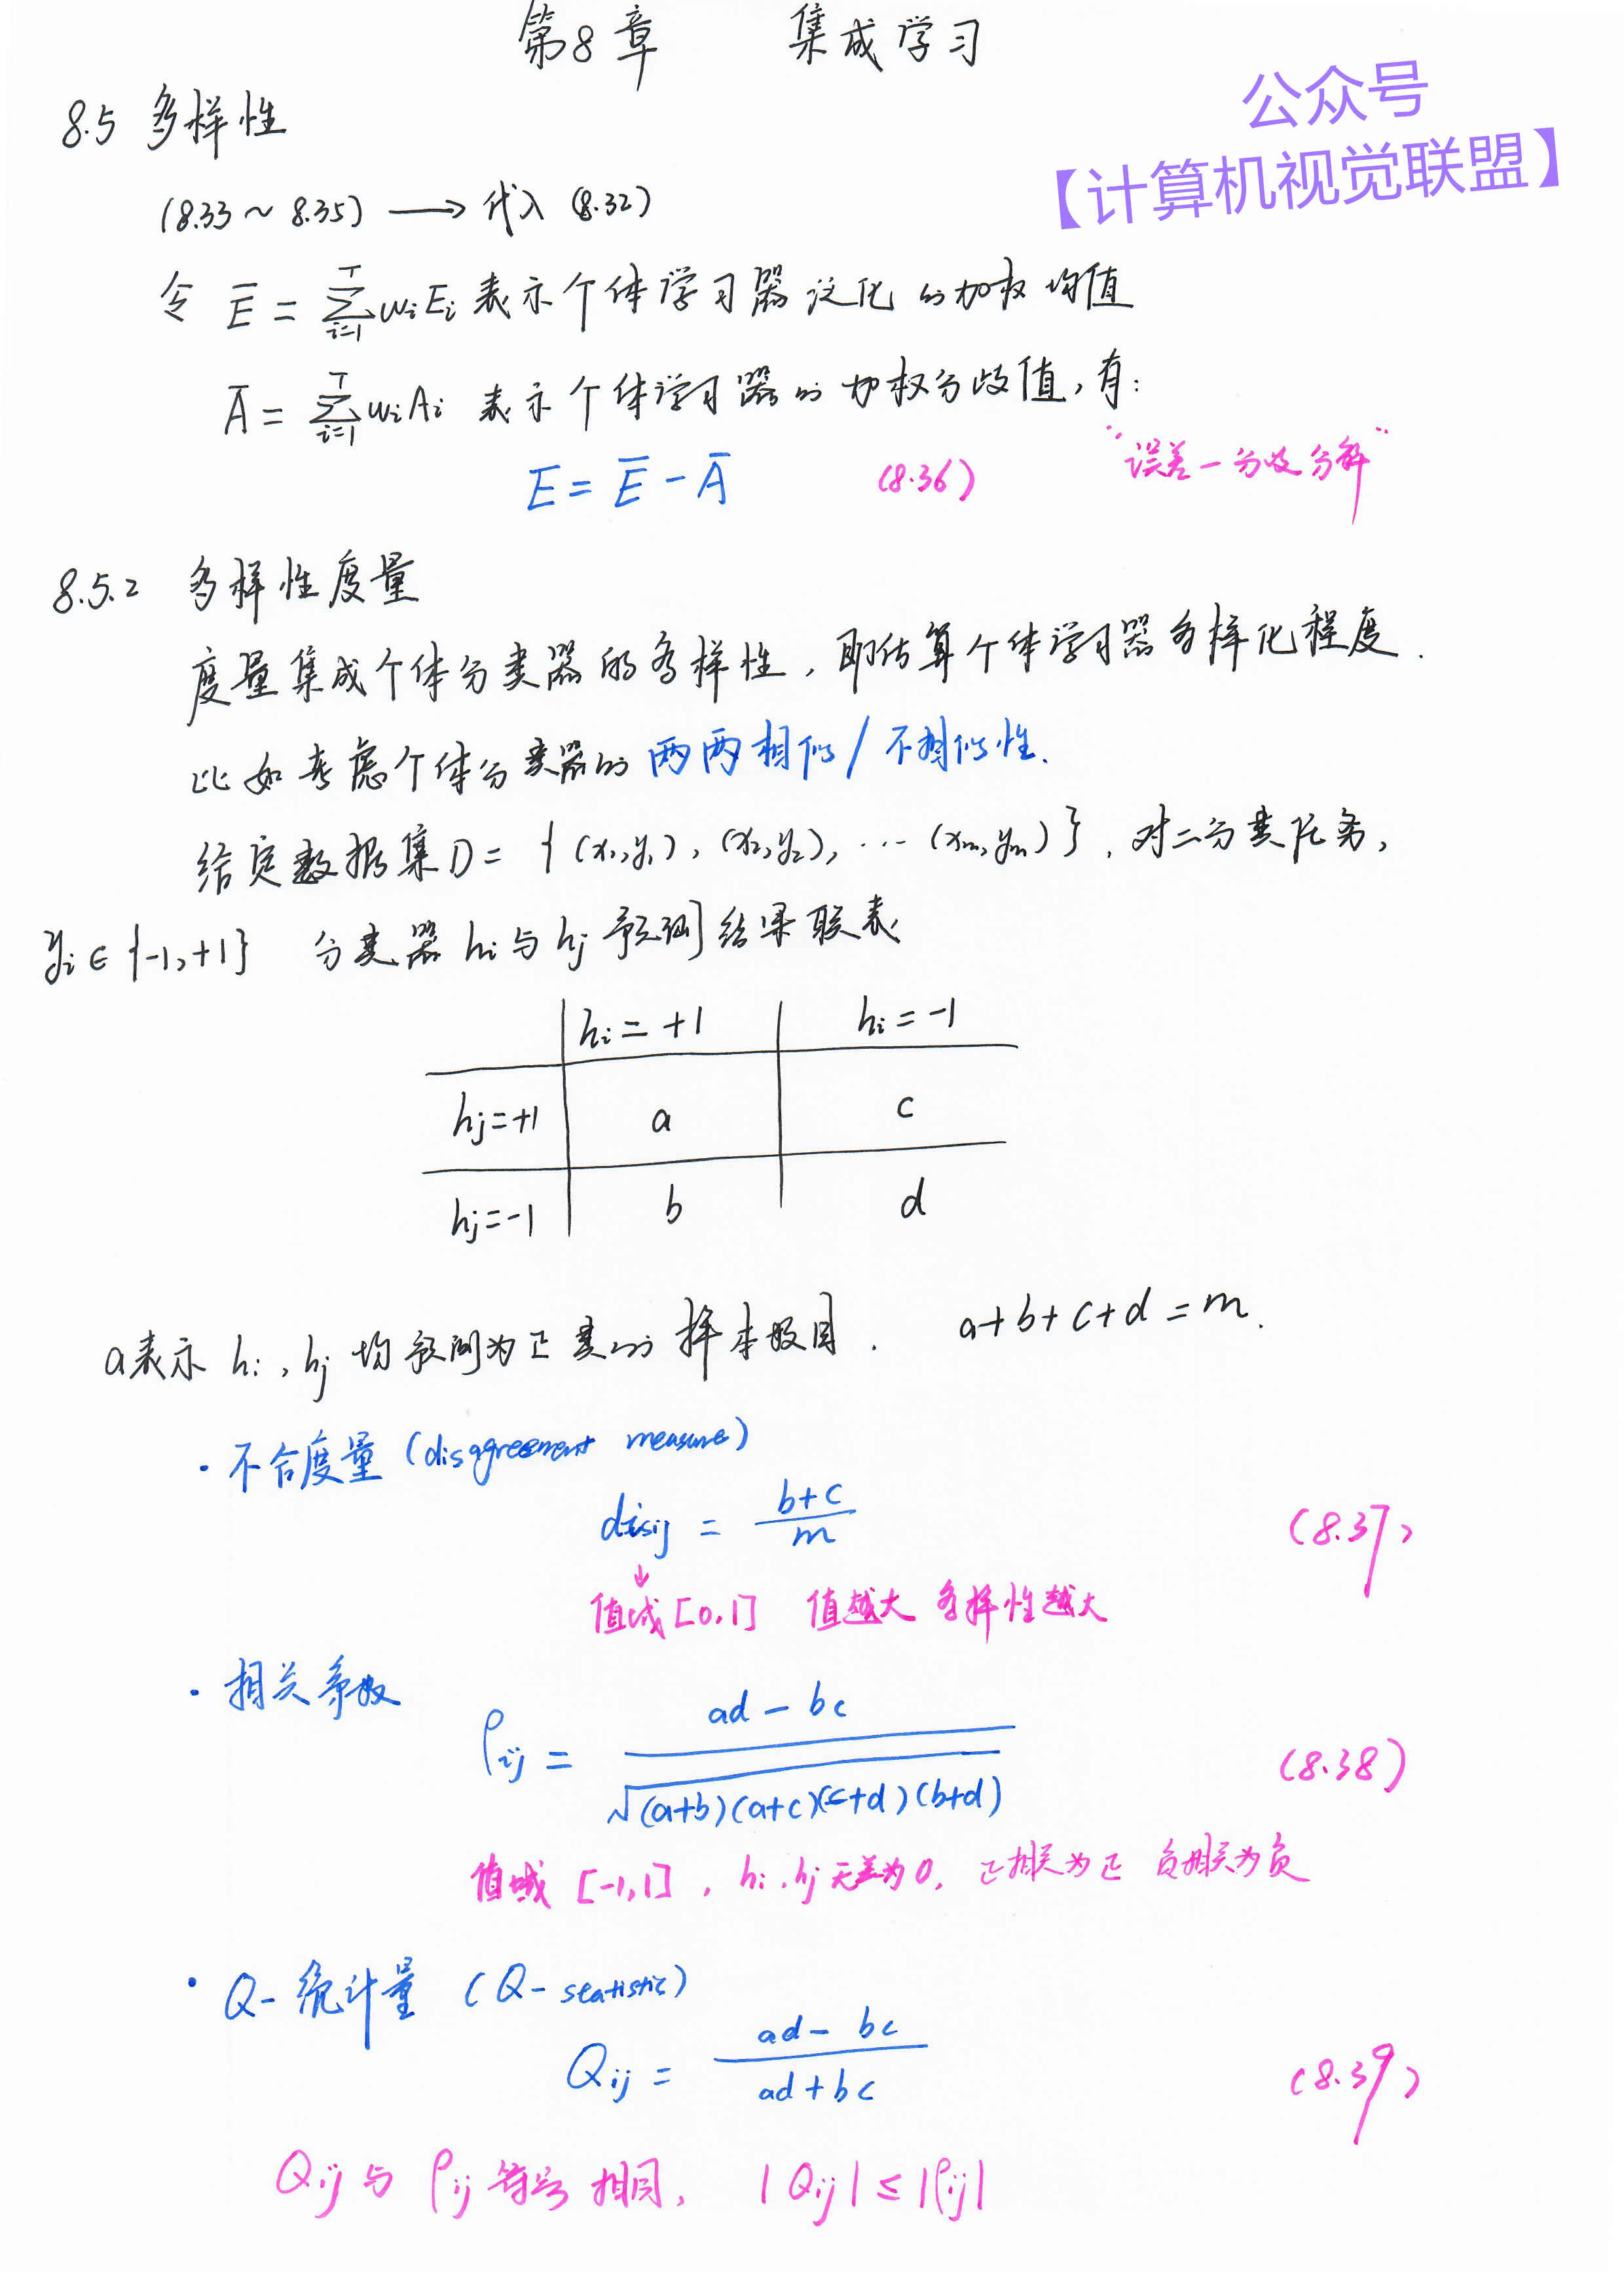 第8章 集成学习
公众号
【计算机视觉联盟】
8.5 多样性
(8.33 ~ 8.35) ⟶ 代入 (8.32)
令 Ē = Σ_{i=1}^{T} wᵢEᵢ 表示个体学习器泛化的加权均值
Ā = Σ_{i=1}^{T} wᵢAᵢ 表示个体学习器的加权分歧值,有:
E = Ē - Ā (8.36) "误差-分歧分解"
8.5.2 多样性度量
度量集成个体分类器的多样性,即估算个体学习器多样化程度.
比如考虑个体分类器的两两相似/不相似性.
给定数据集D = {(x₁,y₁), (x₂,y₂), … (xₘ,yₘ)}, 对二分类任务,
yᵢ ∈ {-1,+1} 分类器 hᵢ与hⱼ 预测结果联表
hᵢ = +1 hᵢ = -1
hⱼ=+1 a c
hⱼ=-1 b d
a表示 hᵢ,hⱼ 均预测为正类的样本数目. a+b+c+d = m.
· 不合度量 (disagreement measure)
disᵢⱼ = (b+c)/m (8.37)
↓
值域[0,1] 值越大 多样性越大
· 相关系数
ρᵢⱼ = (ad - bc)/√((a+b)(a+c)(c+d)(b+d)) (8.38)
值域 [-1,1], hᵢ,hⱼ无关为0, 正相关为正 负相关为负
· Q-统计量 (Q-statistic)
Qᵢⱼ = (ad - bc)/(ad + bc) (8.39)
Qᵢⱼ与ρᵢⱼ符号相同, |Qᵢⱼ| ≤ |ρᵢⱼ|